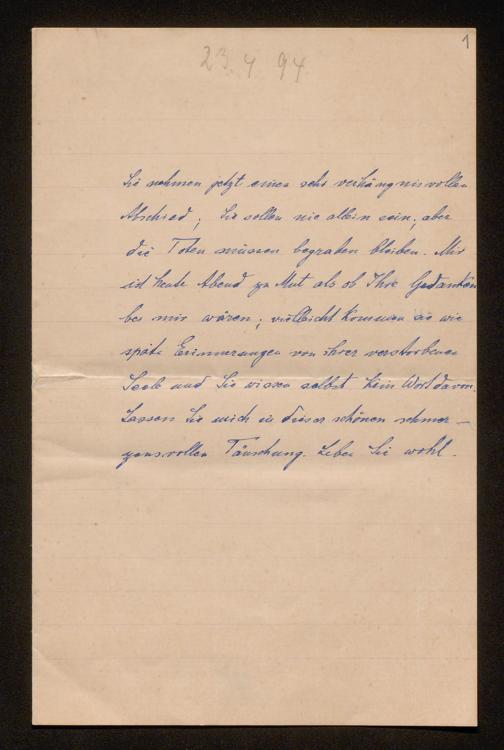 1
23. 4 94.
Sie nehmen jetzt einen sehr verhängnisvollen
Abschied; Sie sollen nie allein sein; aber
die Toten müssen begraben bleiben. Mir
ist heute Abend zu Mut als ob Ihre Gedanken
bei mir wären; vielleicht kommen sie wie
späte Erinnerungen von Ihrer verstorbenen
Seele und Sie wissen selbst kein Wort davon.
Lassen Sie mich in dieser schönen schmer-
zensvollen Täuschung. Leben Sie wohl.